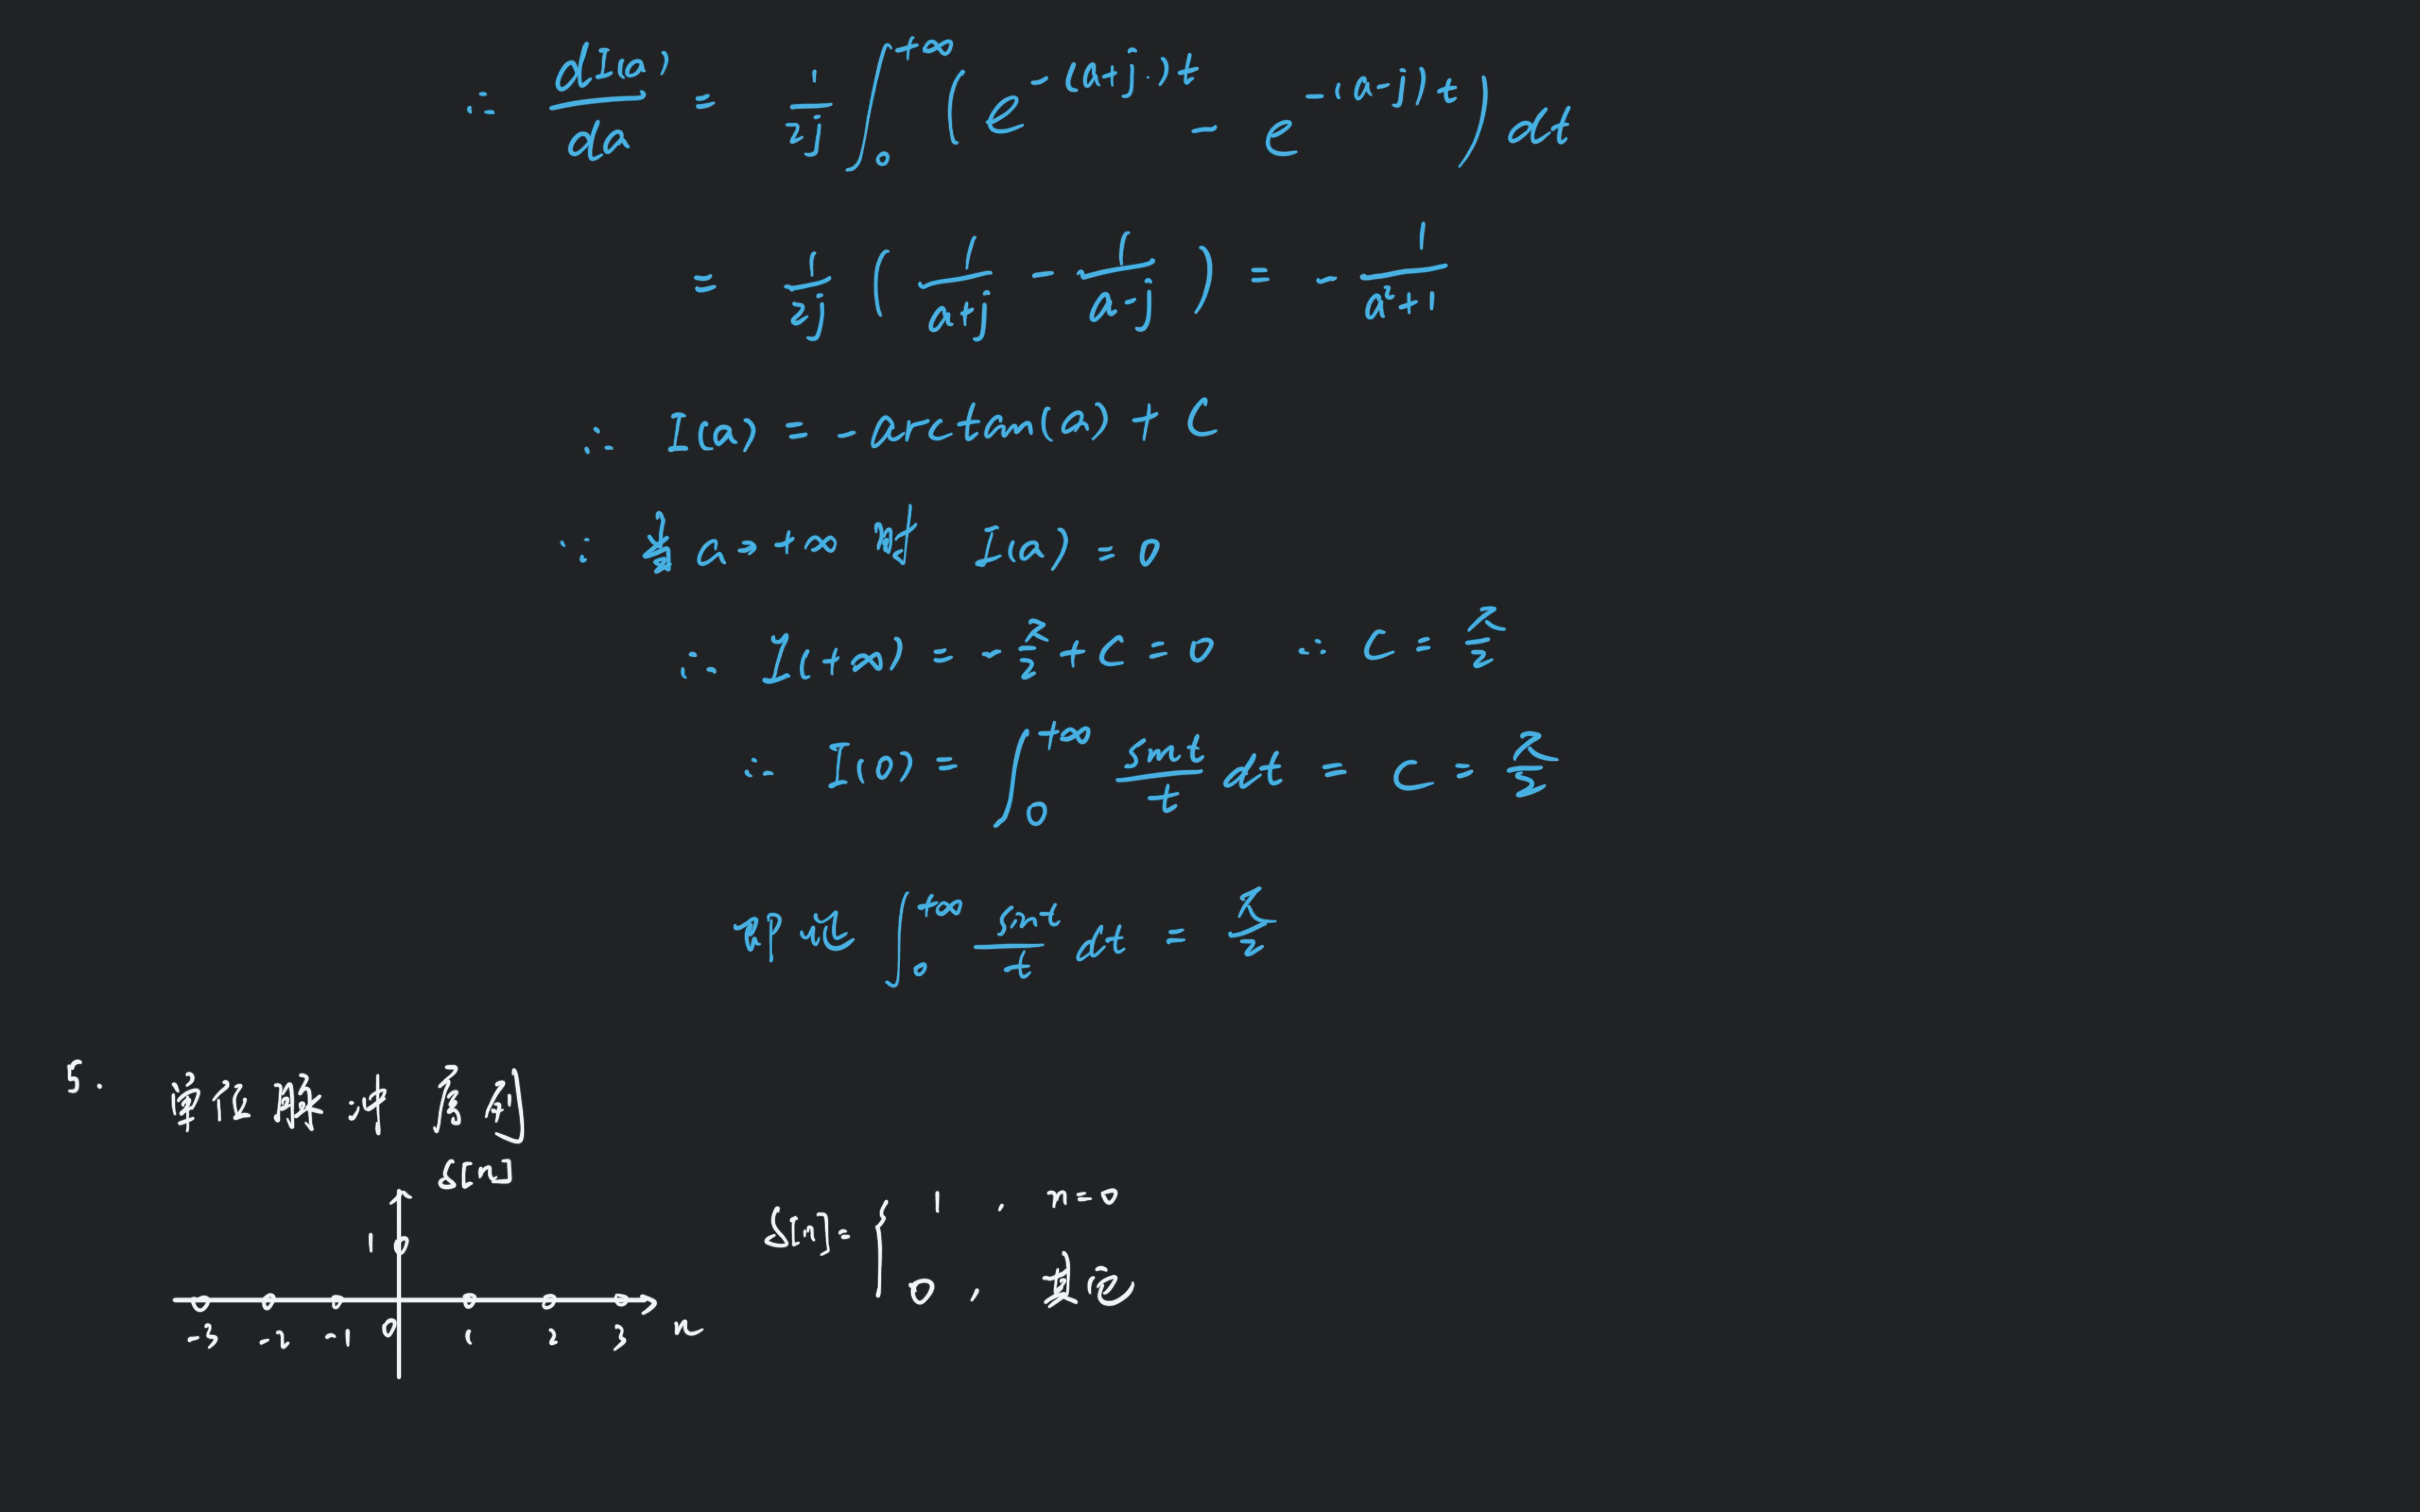 ∴ dI(a)/da = 1/2j ∫₀^{+∞} (e^{-(a+j)t} - e^{-(a-j)t}) dt
= 1/2j (1/(a+j) - 1/(a-j)) = - 1/(a²+1)
∴ I(a) = -arctan(a) + C
∵ 当 a→+∞ 时 I(a) = 0
∴ I(+∞) = -π/2 + C = 0 ∴ C = π/2
∴ I(0) = ∫₀^{+∞} sint/t dt = C = π/2
即证 ∫₀^{+∞} sint/t dt = π/2
5. 单位脉冲序列
δ[n]
δ[n] = { 1 , n=0
0 , 其它
1
-3 -2 -1 0 1 2 3 n